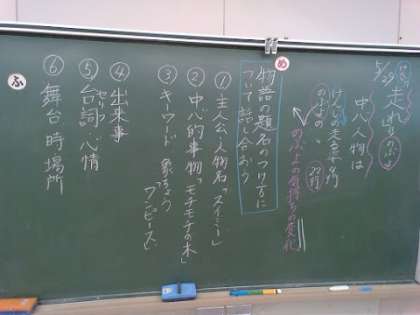 5/29
走れ
中心人物は
のぶよの
のぶよの気持ちの変化
め
物語の題名のつけ方に
ついて話し合おう
①主人公、人物名「スイミー」
②中心的事物「モチモチの木」
③キーワード、象ちょう
「ワンピース」
④出来事
⑤台詞、心情
セリフ
⑥舞台 時 場所
ふ